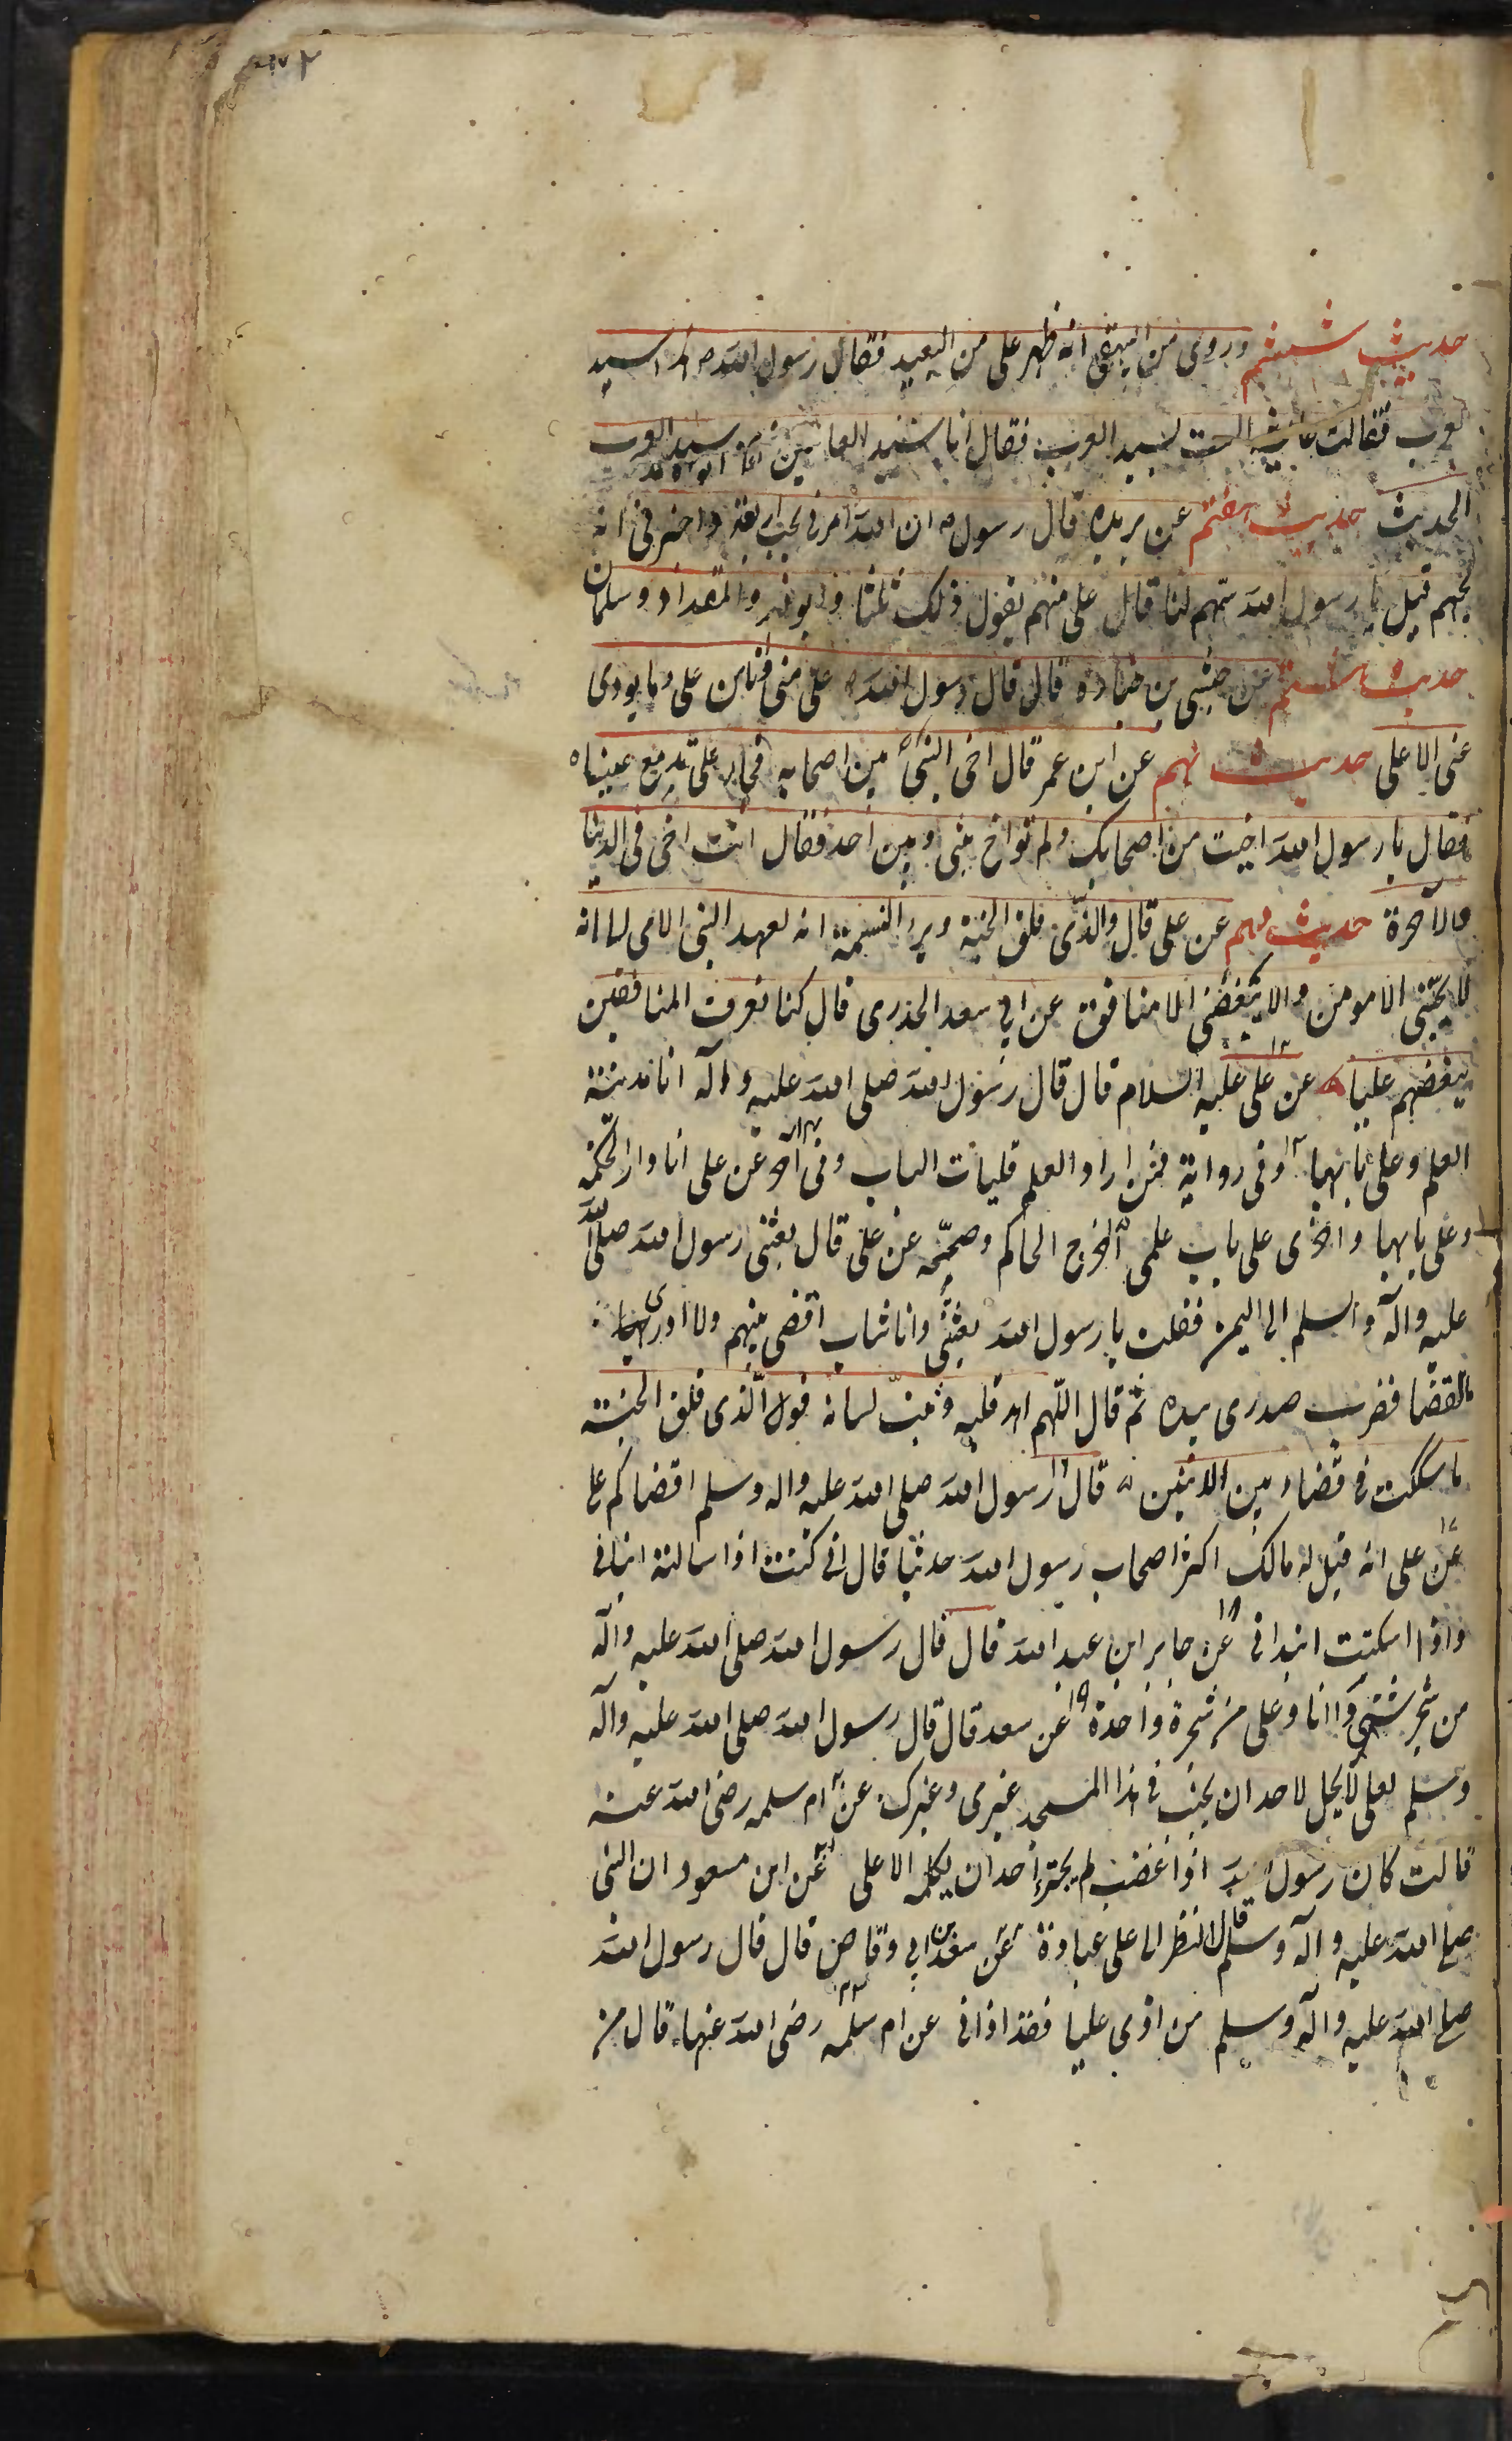 حديث ششم وروى من البيهقى انه ظهر على من البعيد فقال رسول الله ص هذا سيد
العرب فقالت عايشه الست لسيد العرب فقال انا سيد العالمين وهو سيد العرب
الحديث حديث هفتم عن بريده قال رسول ان الله امرنى بحب اربعة واخبرنى انه
يحبهم قيل يا رسول الله سمهم لنا قال على منهم يقول ذلك ثلثا وابوذر والمقداد وسلمان
حديث هشتم عن حبشى بن جناده قال قال رسول الله على منى وانا من على وما يودى
عنى الا على حديث نهم عن ابن عمر قال اخى النبى بين اصحابه فجاء على تدمع عيناه
فقال يا رسول الله اخيت من اصحابك ولم تواخ بينى وبين احد فقال انت اخى فى الدنيا
والاخرة حديث دهم عن على قال والذى فلق الحبة وبرء النسمة انه لعهد النبى الامى لى انه
لا يحبنى الا مومن ولا يبغضنى الا منافق عن ابي سعد الخدرى قال كنا نعرف المنافقين
ببغضهم عليا ١٢ عن على عليه السلام قال قال رسول الله صلى الله عليه واله انا مدينة
العلم وعلى بابها ١٣ وفى رواية فمن اراد العلم فليات الباب وفى اخر عن على انا دار الحكمة
وعلى بابها واخرى على باب علمى اخرج الحاكم وصححه عن على قال بعثنى رسول الله صلى الله
عليه واله والسلم الى اليمن فقلت يا رسول الله بعثتنى وانا شاب اقضى بينهم ولا ادرى
بالقضا فضرب صدرى بيده ثم قال اللهم اهد قلبه وثبت لسانه فوالذى فلق الحبة
ما شككت فى قضاء بين الاثنين ١٦ قال رسول الله صلى الله عليه واله وسلم اقضاكم على
١٧ عن على انه قيل له مالك اكثر اصحاب رسول الله حديثا قال انى كنت اذا سالته انبانى
واذا اسكتت ابتدانى ١٨ عن جابر ابن عبد الله قال قال رسول الله صلى الله عليه واله
من شجر شتى وانا وعلى من شجرة واحدة ١٩ عن سعد قال قال رسول الله صلى الله عليه واله
وسلم لعلى لا يحل لاحد ان يجنب فى هذا المسجد غيرى وغيرك عن ام سلمه رضى الله عنه
قالت كان رسول الله اذا غضب لم يجترء احد ان يكلمه الا على عن ابن مسعود ان النبى
صلى الله عليه واله وسلم قال النظر الى على عبادة عن سعد بن ابي وقاص قال قال رسول الله
صلى الله عليه واله وسلم من اذى عليا فقد اذانى عن ام سلمه رضى الله عنها قال من